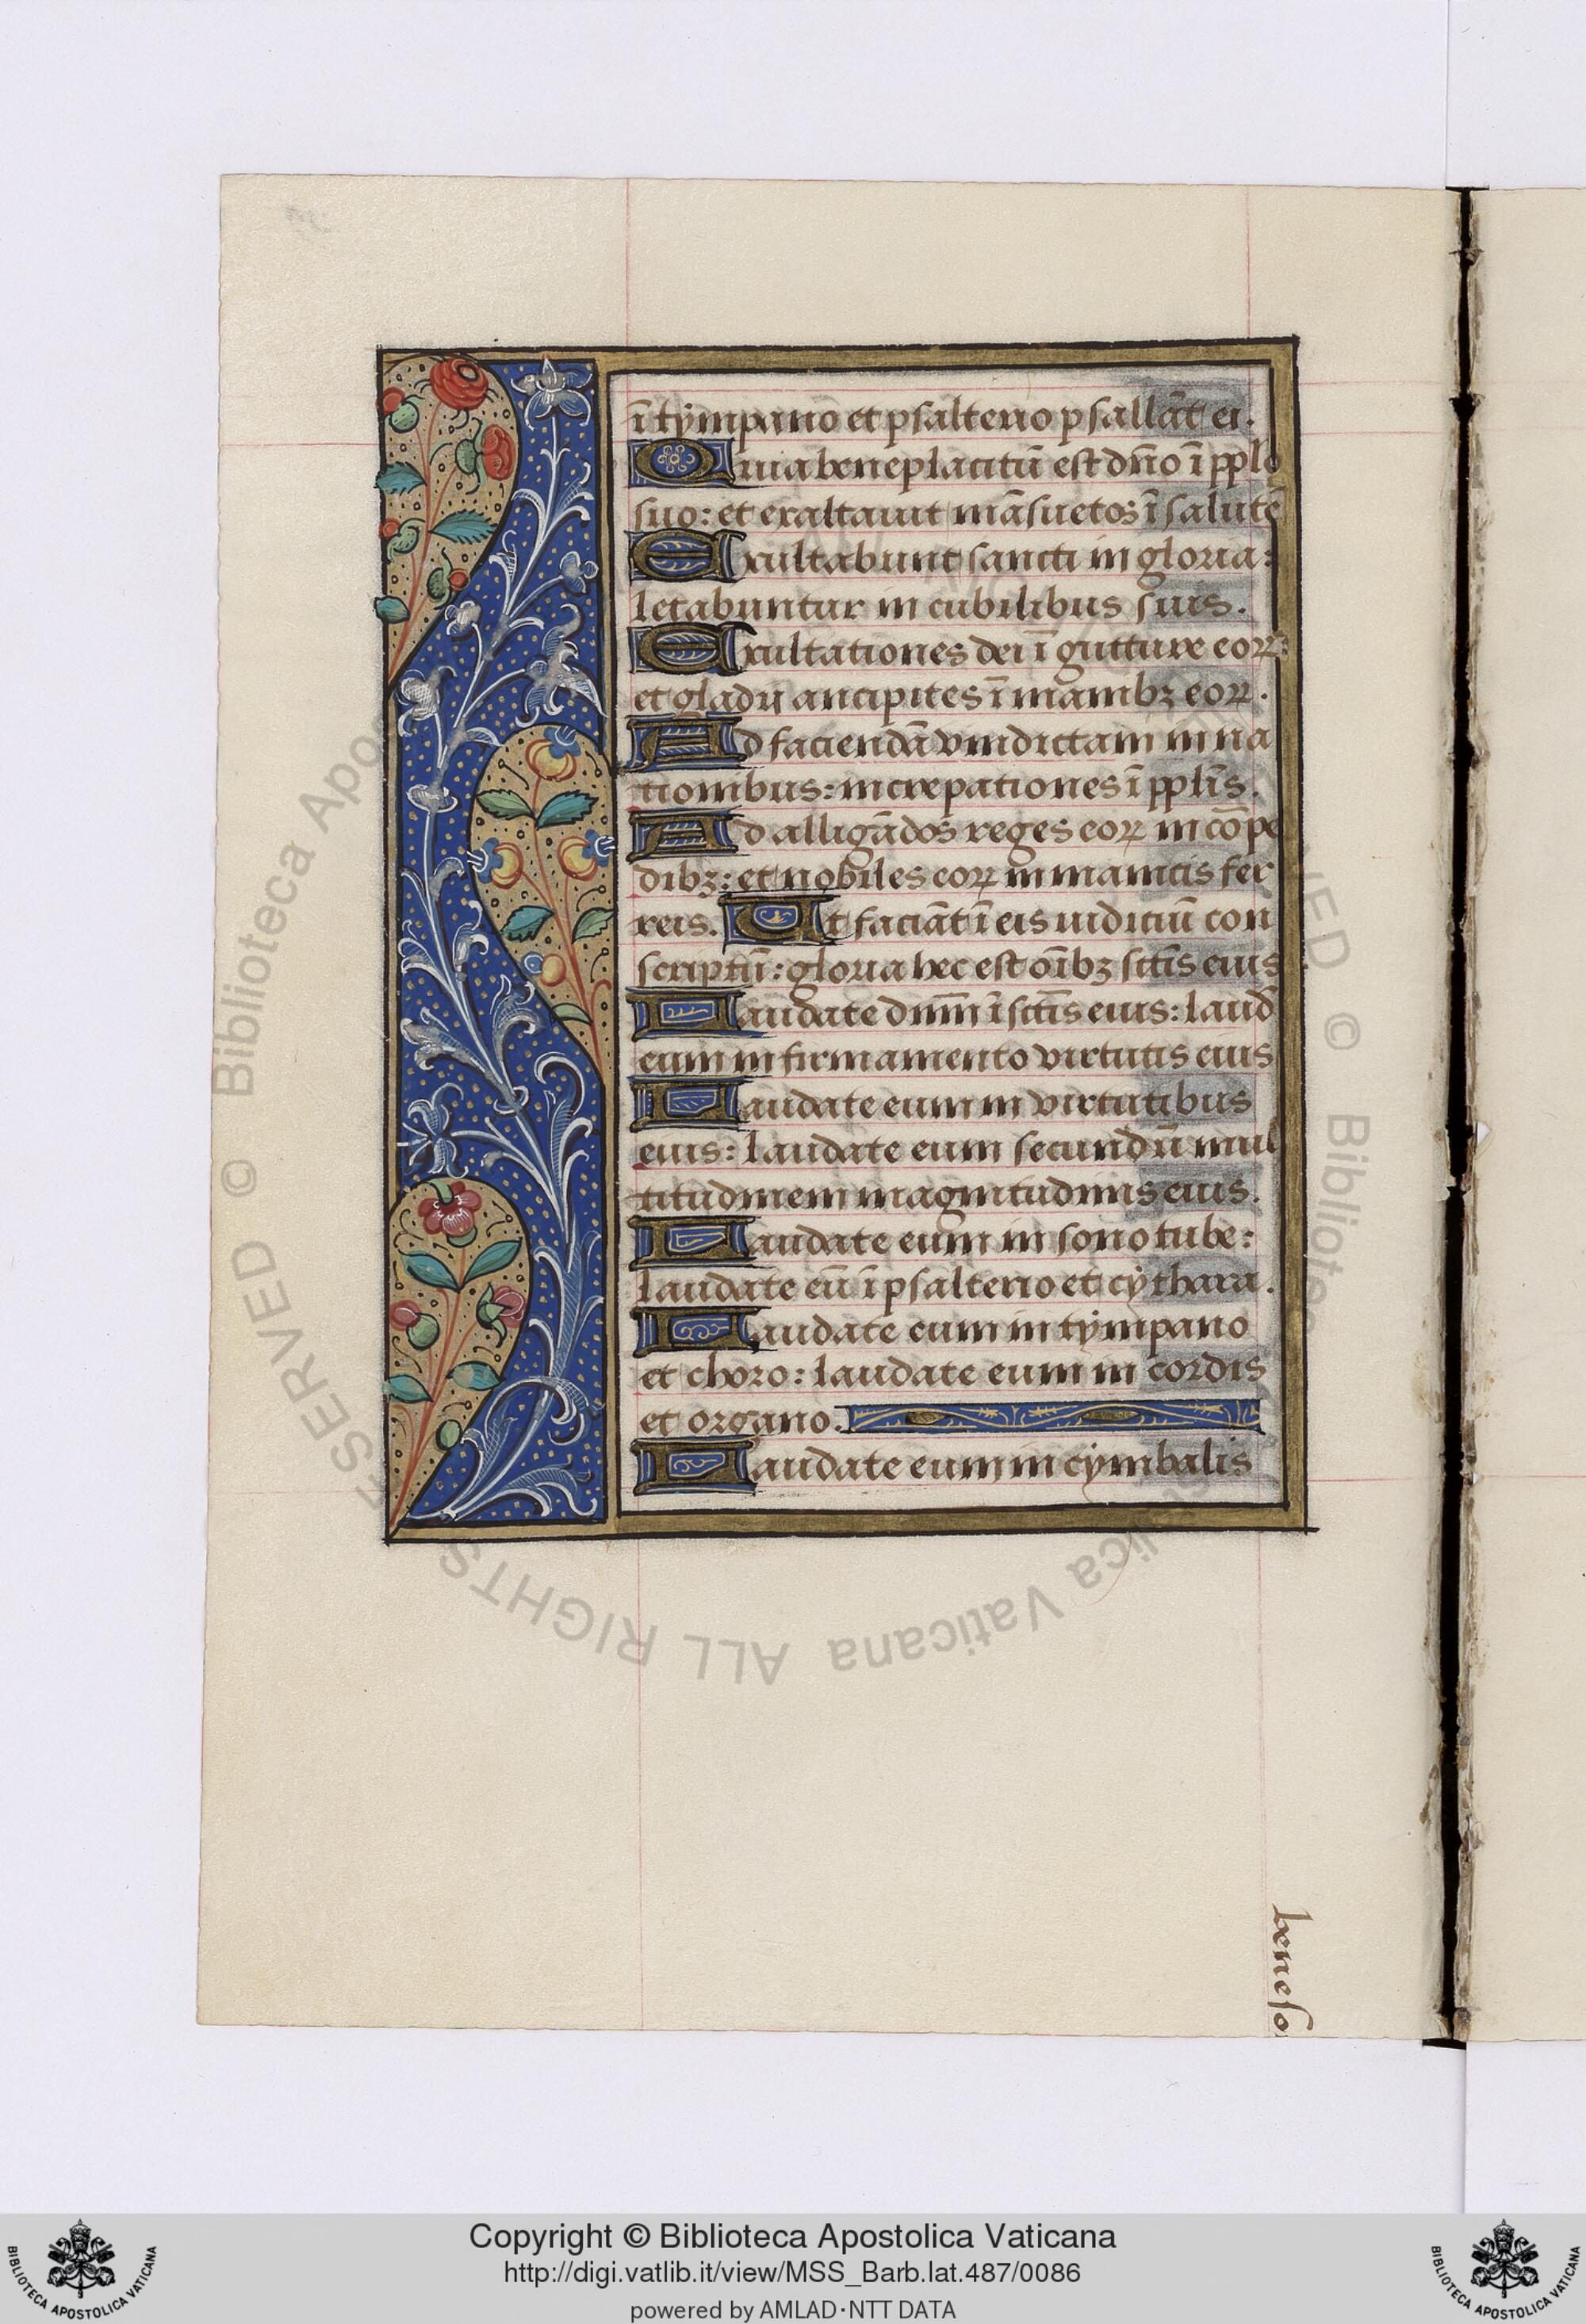 ī tympano et psalterio psallāt ei.
Quia beneplacitū est dn̄o ī pplo
suo: et exaltauit māsuetos ī salutē
Exultabunt sancti in gloria:
letabuntur in cubilibus suis.
Exultationes dei ī gutture eoꝝ:
et gladii ancipites ī manibꝫ eoꝝ.
Ad faciendā vindictam in na
tionibus: increpationes ī pplīs.
Ad alligādos reges eoꝝ in cōpe
dibꝫ: et nobiles eoꝝ in manicis fer
reis. Ut faciāt ī eis iudiciū con
scriptū: gloria hec est oībꝫ sctīs eius
Laudate dnm̄ ī sctīs eius: laud̄
eum in firmamento virtutis eius
Laudate eum in virtutibus
eius: laudate eum secundū mul
titudinem magnitudinis eius.
Laudate eum in sono tube:
laudate eū ī psalterio et cythara.
Laudate eum in tympano
et choro: laudate eum in cordis
et organo.
Laudate eum in cymbalis
beneso
Copyright © Biblioteca Apostolica Vaticana
http://digi.vatlib.it/view/MSS_Barb.lat.487/0086
powered by AMLAD·NTT DATA
BIBLIOTECA APOSTOLICA VATICANA
BIBLIOTECA APOSTOLICA VATICANA